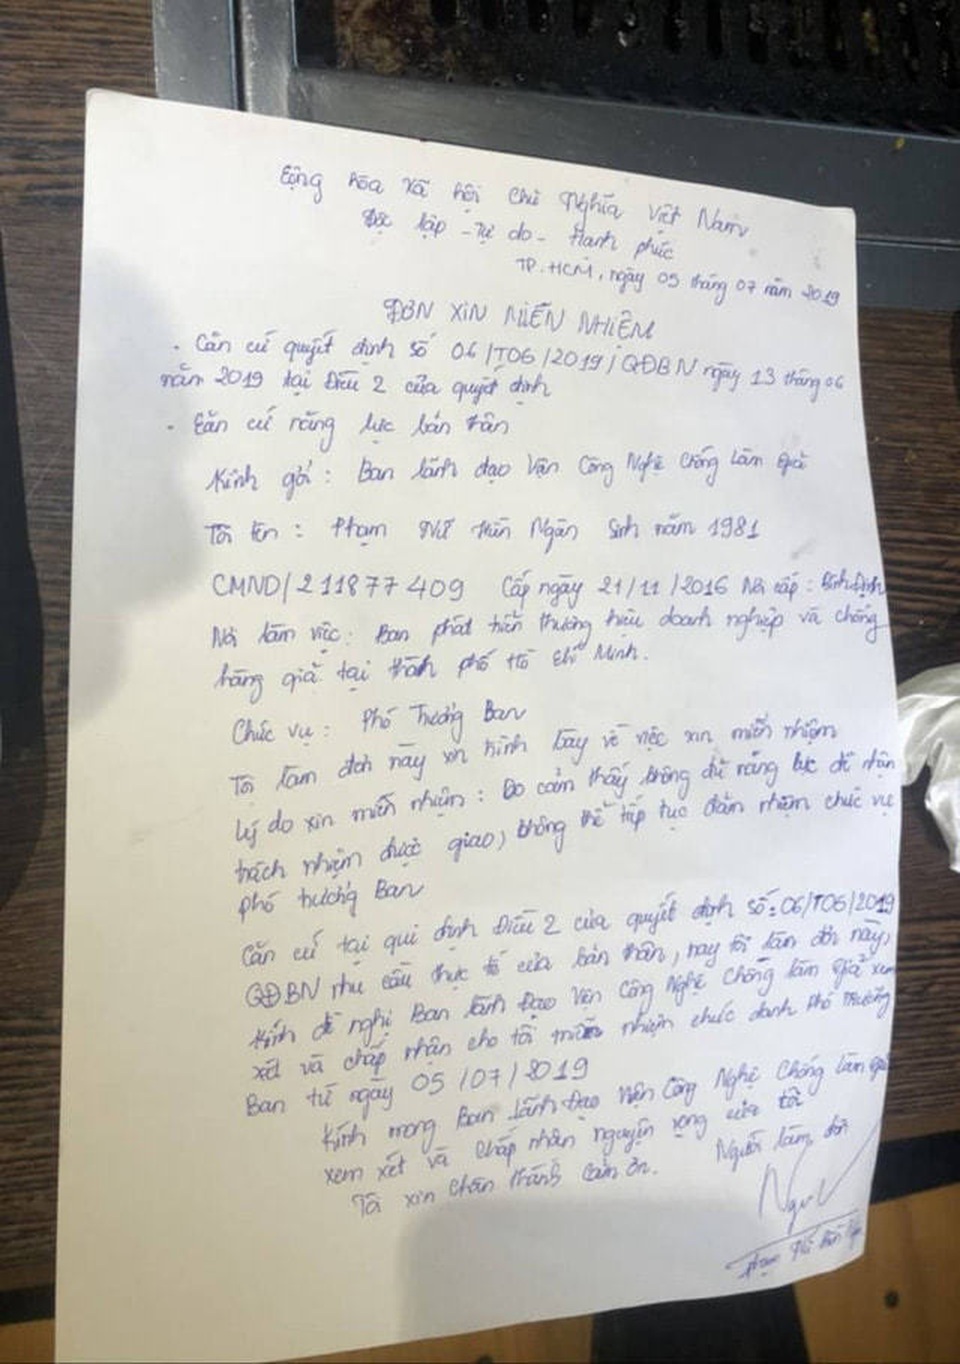 Cộng hòa xã hội chủ Nghĩa Việt Nam
Độc lập - Tự do - Hạnh phúc
TP. HCM, ngày 05 tháng 07 năm 2019
ĐƠN XIN MIỄN NHIỆM
- Căn cứ quyết định số 06/T06/2019/QĐBN ngày 13 tháng 06
năm 2019 tại Điều 2 của quyết định
- Căn cứ năng lực bản thân
Kính gởi : Ban lãnh đạo Viện Công Nghệ Chống Làm Giả
Tôi tên : Phạm Nữ Hiền Ngân Sinh năm 1981
CMND/211877409 Cấp ngày 21/11/2016 Nơi cấp : Bình Định
Nơi làm việc : Ban phát triển thương hiệu doanh nghiệp và chống
hàng giả tại thành phố Hồ Chí Minh.
Chức vụ : Phó Trưởng Ban
Tôi làm đơn này xin trình bày về việc xin miễn nhiệm
Lý do xin miễn nhiệm : Do cảm thấy không đủ năng lực để nhận
trách nhiệm được giao, không thể tiếp tục đảm nhiệm chức vụ
phó trưởng Ban
Căn cứ tại qui định Điều 2 của quyết định số : 06/T06/2019
QĐBN nhu cầu thực tế của bản thân, nay tôi làm đơn này,
Kính đề nghị Ban Lãnh Đạo Viện Công Nghệ Chống làm giả xem
xét và chấp nhận cho tôi miễn nhiệm chức danh Phó Trưởng
Ban từ ngày 05/07/2019
Kính mong Ban Lãnh Đạo Viện Công Nghệ Chống Làm giả
xem xét và chấp nhận nguyện vọng của tôi
Tôi xin chân thành cảm ơn. Người làm đơn
Phạm Nữ Hiền